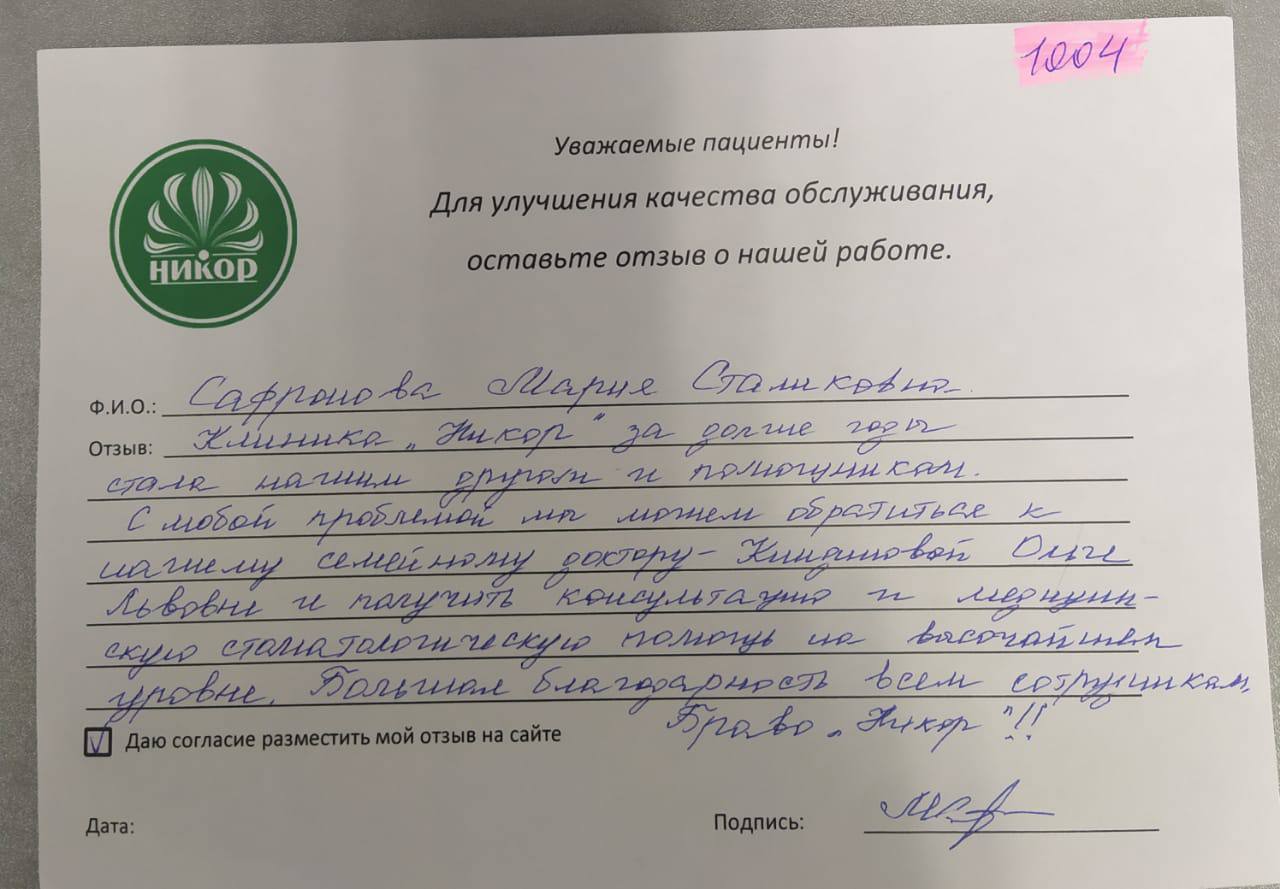 1004
Уважаемые пациенты!
Для улучшения качества обслуживания,
оставьте отзыв о нашей работе.
НИКОР
Ф.И.О.: Сафронова Мария
Отзыв: Клиника „Никор" за долгие годы
стала нашим другом и помощником.
С любой проблемой мы можем обратиться к
нашему семейному доктору - Ольге
Львовне и получить консультацию и медицин-
скую стоматологическую помощь на высочайшем
уровне. Большая благодарность всем сотрудникам.
Браво „Никор"!!
Даю согласие разместить мой отзыв на сайте
Дата:
Подпись: